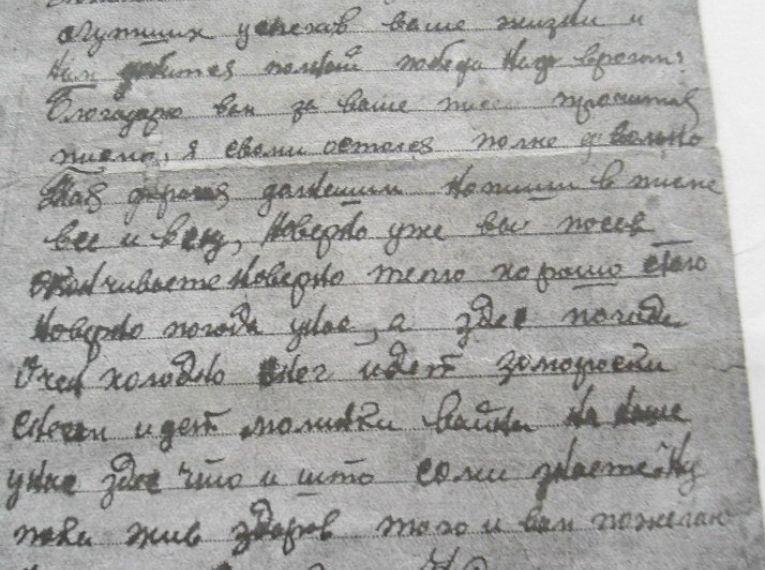 лучших успехав ваше жизни и
Нам добится полной победи над врогом.
Благодарю вам за ваше писм прочитав
писмо, я свами остался полне довольно
Мая дорогая напиши в писме
все и всем, Новерно уже вы посев
Новерно тепло хорошо стало
Новерно погода унас, а здес погода
Очен холодно снег идет заморозки
снеги идет вайни На Наше
уже здес что и што соми знаете. Ну
пока жив здоров того и вам пожелаю